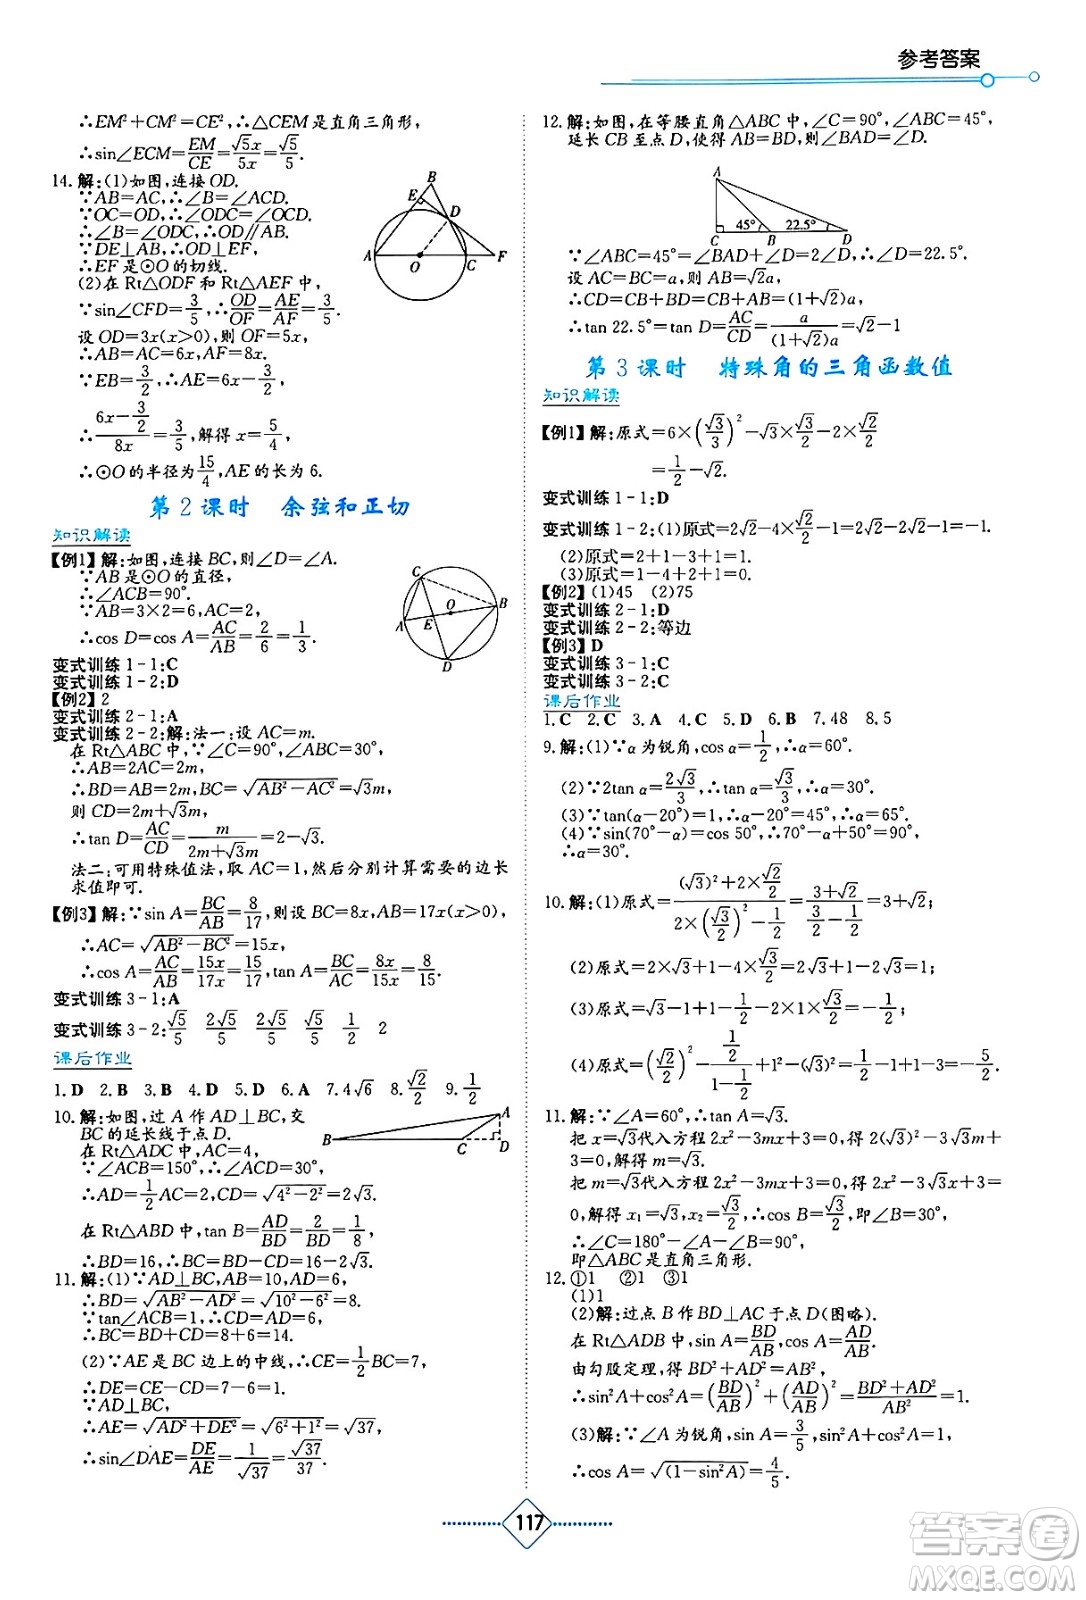 参考答案
∴EM²+CM²=CE²,∴△CEM是直角三角形,
∴sin∠ECM=EM/CE=√5x/5x=√5/5.
14.解:(1)如图,连接OD.
∵AB=AC,∴∠B=∠ACD.
∵OC=OD,∴∠ODC=∠OCD.
∴∠B=∠ODC,∴OD∥AB.
∵DE⊥AB,∴OD⊥EF.
∴EF是⊙O的切线.
(2)在Rt△ODF和Rt△AEF中,
∵sin∠CFD=3/5,∴OD/OF=AE/AF=3/5.
设OD=3x(x>0),则OF=5x.
∴AB=AC=6x,AF=8x.
∵EB=3/2,∴AE=6x-3/2.
∴(6x-3/2)/8x=3/5,解得x=5/4.
∴⊙O的半径为15/4,AE的长为6.
B
E
D
A
O
C
F
第2课时 余弦和正切
知识解读
【例1】解:如图,连接BC,则∠D=∠A.
∵AB是⊙O的直径,
∴∠ACB=90°.
∵AB=3×2=6,AC=2,
∴cos D=cos A=AC/AB=2/6=1/3.
C
O
B
A
E
D
变式训练1-1:C
变式训练1-2:D
【例2】2
变式训练2-1:A
变式训练2-2:解:法一:设AC=m.
在Rt△ABC中,∵∠C=90°,∠ABC=30°,
∴AB=2AC=2m,
∴BD=AB=2m,BC=√(AB²-AC²)=√3m,
则CD=2m+√3m,
∴tan D=AC/CD=m/(2m+√3m)=2-√3.
法二:可用特殊值法,取AC=1,然后分别计算需要的边长
求值即可.
【例3】解:∵sin A=BC/AB=8/17,则设BC=8x,AB=17x(x>0),
∴AC=√(AB²-BC²)=15x,
∴cos A=AC/AB=15x/17x=15/17,tan A=BC/AC=8x/15x=8/15.
变式训练3-1:A
变式训练3-2:√5/5 2√5/5 2√5/5 √5/5 1/2 2
课后作业
1.D 2.B 3.B 4.D 5.D 6.A 7.4√6 8.√2/2 9.1/2
10.解:如图,过A作AD⊥BC,交
BC的延长线于点D.
在Rt△ADC中,AC=4,
∵∠ACB=150°,∴∠ACD=30°,
∴AD=1/2AC=2,CD=√(4²-2²)=2√3.
在Rt△ABD中,tan B=AD/BD=2/BD=1/8,
∴BD=16,∴BC=BD-CD=16-2√3.
A
B
C
D
11.解:(1)∵AD⊥BC,AB=10,AD=6,
∴BD=√(AB²-AD²)=√(10²-6²)=8.
∵tan∠ACB=1,∴CD=AD=6,
∴BC=BD+CD=8+6=14.
(2)∵AE是BC边上的中线,∴CE=1/2BC=7,
∴DE=CE-CD=7-6=1.
∵AD⊥BC,
∴AE=√(AD²+DE²)=√(6²+1²)=√37,
∴sin∠DAE=DE/AE=1/√37=√37/37.
12.解:如图,在等腰直角△ABC中,∠C=90°,∠ABC=45°,
延长CB至点D,使得BD=AB,则∠BAD=∠D.
A
45°
22.5°
C
B
D
∵∠ABC=45°=∠BAD+∠D=2∠D,∴∠D=22.5°.
设AC=BC=a,则BD=AB=√2a,
∴CD=CB+BD=a+√2a=(1+√2)a,
∴tan 22.5°=tan D=AC/CD=a/(1+√2)a=√2-1
第3课时 特殊角的三角函数值
知识解读
【例1】解:原式=6×(√3/3)²-√3×√3/2-2×√2/2
=1/2-√2.
变式训练1-1:D
变式训练1-2:(1)原式=2√2-4×√2/2-1=2√2-2√2-1=-1.
(2)原式=2+1-3=0.
(3)原式=1-4+2+1=0.
【例2】(1)45 (2)75
变式训练2-1:D
变式训练2-2:等边
【例3】D
变式训练3-1:C
变式训练3-2:C
课后作业
1.C 2.C 3.A 4.C 5.D 6.B 7.48 8.5
9.解:(1)∵α为锐角,cos α=1/2,∴α=60°.
(2)∵2tan α=2√3/3,∴tan α=√3/3,∴α=30°.
(3)∵tan(α-20°)=1,∴α-20°=45°,∴α=65°.
(4)∵sin(70°-α)=cos 50°,∴70°-α+50°=90°,
∴α=30°.
10.解:(1)原式=((√3)²+2×√2/2)/(2×(√3/2)²-1/2)=(3+√2)/(3/2-1/2)=3+√2;
(2)原式=2×√3+1-4×(√3/2)²=2√3+1-3=2√3-2;
(3)原式=√3-1+1/2-2×1×√3/2=√3-1+1/2-√3=-1/2;
(4)原式=(√2/2)²-(1/2)/(1-1/2)+1²-(√3)²=1/2-1+1-3=-5/2.
11.解:∵∠A=60°,∴tan A=√3.
把x=√3代入方程2x²-3mx+3=0,得2(√3)²-3√3m+3
=0,解得m=√3.
把m=√3代入方程2x²-3mx+3=0,得2x²-3√3x+3=
0,解得x₁=√3,x₂=√3/2,∴cos B=√3/2,即∠B=30°,
∴∠C=180°-∠A-∠B=90°,
即△ABC是直角三角形.
12.①1 ②1 ③1
(1)1
(2)解:过点B作BD⊥AC于点D(图略).
在Rt△ADB中,sin A=BD/AB,cos A=AD/AB,
由勾股定理,得BD²+AD²=AB²,
∴sin²A+cos²A=(BD/AB)²+(AD/AB)²=(BD²+AD²)/AB²=1.
(3)解:∵∠A为锐角,sin A=3/5,sin²A+cos²A=1,
∴cos A=√(1-sin²A)=4/5.
117
答案卷
MXQE.COM